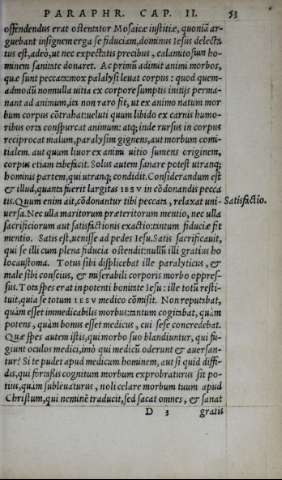 PARAPHR. CAP. II. 53
offendendus erat ostentator Mosaicæ iustitiæ, quoniā ar-
guebant insignem erga se fiduciam, dominus Iesus delecta
tus est, adeò, ut nec expectatis precibus, calamitoso ho-
minem sanitate donaret. Ac primū adimit animi morbos,
quæ sunt peccata: mox palalysi leuat corpus: quod quem-
admodū nonnulla uitia ex corpore sumptis initijs perma-
nant ad animum, ita non raro fit, ut ex animo natum mor
bum corpus cōtrahat: ueluti quum libido ex carnis humo-
ribus orta conspurcat animum: atq; inde rursus in corpus
reciprocat malum, paralysim gignens, aut morbum comi-
tialem. aut quum liuor ex animi uitio sumens originem,
corpus etiam tabefacit. Solus autem sanare potest utranq;
hominis partem, qui utranq; condidit. Considerandum est
& illud, quanta fuerit largitas IESV in cōdonandis pecca
tis. Quum enim ait, cōdonantur tibi peccata, relaxat uni- Satisfactio.
uersa. Nec ulla maritorum præteritorum mentio, nec ulla
sacrificiorum aut satisfactionis exactio: tantum fiduciæ fit
mentio. Satis est, uenisse ad pedes Iesu. Satis sacrificauit,
qui se illi cum plena fiducia ostendit: nullū illi gratius ho
locaustoma. Totus sibi displicebat ille paralyticus, et
male sibi conscius, & miserabili corporis morbo oppres-
sus. Tota spes erat in potenti bonitate Iesu: ille totū resti-
tuit, quia se totum IESV medico cōmisit. Non reputabat,
quàm esset immedicabilis morbus: tantum cogitabat, quàm
potens, quàm bonus esset medicus, cui sese concredebat.
Quæ spes autem istis, qui morbo suo blandiuntur, qui fu-
giunt oculos medici, imò qui medicū oderunt & auersan-
tur? Si te pudet apud medicum hominem, aut si quid diffi-
dis, qui fortassis cognitum morbum exprobraturus sit po-
tius, quàm subleuaturus, noli celare morbum tuum apud
Christum, qui neminē traducit, sed sacat omnes, & sanat
D 3 gratis